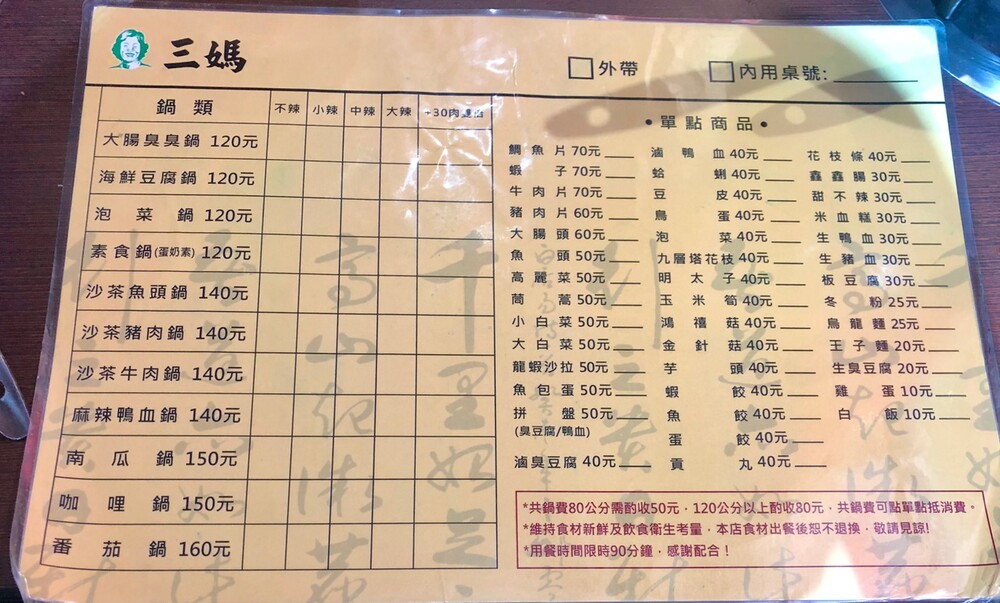 三媽
□外帶 □內用桌號:
鍋類 不辣 小辣 中辣 大辣
大腸臭臭鍋 120元
海鮮豆腐鍋 120元
泡菜鍋 120元
素食鍋(蛋奶素) 120元
沙茶魚頭鍋 140元
沙茶豬肉鍋 140元
沙茶牛肉鍋 140元
麻辣鴨血鍋 140元
南瓜鍋 150元
咖哩鍋 150元
番茄鍋 160元
•單點商品•
鯛魚片70元
蝦子70元
牛肉片70元
豬肉片60元
大腸頭60元
魚頭50元
高麗菜50元
茼蒿50元
小白菜50元
大白菜50元
龍蝦沙拉50元
魚包蛋50元
拼盤50元
(臭豆腐/鴨血)
滷臭豆腐40元
滷鴨血40元
蛤蜊40元
豆皮40元
鳥蛋40元
泡菜40元
九層塔花枝40元
明太子40元
玉米筍40元
鴻禧菇40元
金針菇40元
芋頭40元
蝦餃40元
魚餃40元
蛋餃40元
貢丸40元
花枝條40元
鑫鑫腸30元
甜不辣30元
米血糕30元
生鴨血30元
生豬血30元
板豆腐30元
冬粉25元
烏龍麵25元
王子麵20元
生臭豆腐20元
雞蛋10元
白飯10元
*共鍋費80公分需酌收50元，120公分以上酌收80元，共鍋費可點單點抵消費。
*維持食材新鮮及飲食衛生考量，本店食材出餐後恕不退換，敬請見諒!
*用餐時間限時90分鐘，感謝配合！